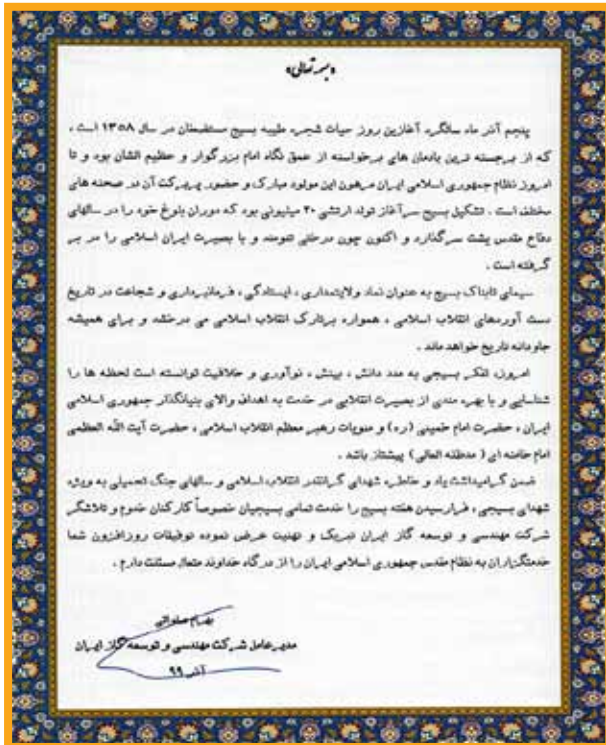 «بسمه تعالی»
پنجم آذر ماه سالگرد آغازین روز حیات شجره طیبه بسیج مستضعفان در سال ۱۳۵۸ است ،
که از برجسته ترین یادمان های برخواسته از عمق نگاه امام بزرگوار و عظیم الشان بود و تا
امروز نظام جمهوری اسلامی ایران مرهون این مولود مبارک و حضور پربرکت آن در صحنه های
مختلف است . تشکیل بسیج سرآغاز تولد ارتشی ۲۰ میلیونی بود که دوران بلوغ خود را در سالهای
دفاع مقدس پشت سر گذارد و اکنون چون درختی تنومند و با بصیرت ایران اسلامی را در بر
گرفته است .
سیمای تابناک بسیج به عنوان نماد ولایتمداری ، ایستادگی ، فرمانبرداری و شجاعت در تاریخ
دست آوردهای انقلاب اسلامی ، همواره برتارک انقلاب اسلامی می درخشد و برای همیشه
جاودانه تاریخ خواهد ماند .
امروزه تفکر بسیجی به مدد دانش ، بینش ، نوآوری و خلاقیت توانسته است لحظه ها را
شناسایی و با بهره مندی از بصیرت انقلابی در خدمت به اهداف والای بنیانگذار جمهوری اسلامی
ایران ، حضرت امام خمینی (ره) و منویات رهبر معظم انقلاب اسلامی ، حضرت آیت الله العظمی
امام خامنه ای ( مدظله العالی) پیشتاز باشد .
ضمن گرامیداشت یاد و خاطره شهدای گرانقدر انقلاب اسلامی و سالهای جنگ تحمیلی به ویژه
شهدای بسیجی ، فرارسیدن هفته بسیج را خدمت تمامی بسیجیان خصوصاً کارکنان خدوم و تلاشگر
شرکت مهندسی و توسعه گاز ایران تبریک و تهنیت عرض نموده توفیقات روزافزون شما
خدمتگزاران به نظام مقدس جمهوری اسلامی ایران را از درگاه خداوند متعال مسئلت دارم .
بهرام صلواتی
مدیرعامل شرکت مهندسی و توسعه گاز ایران
آذر ۹۹